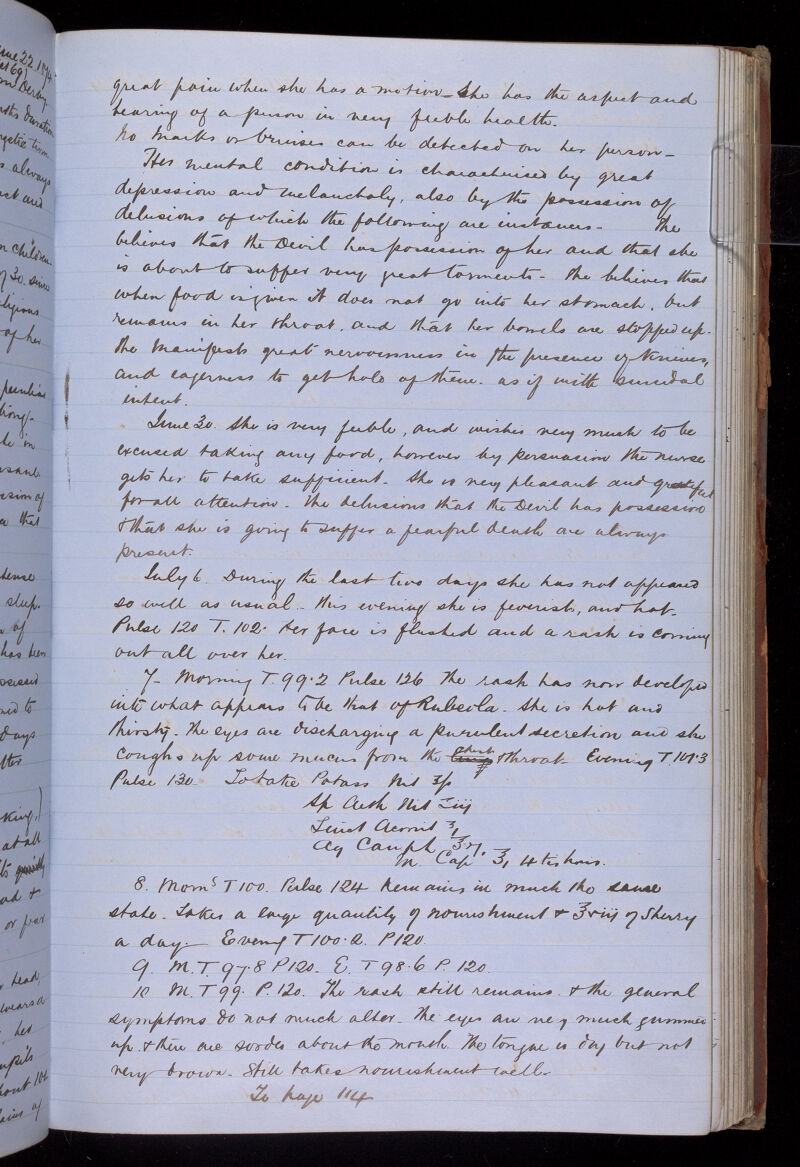 great pain when she has a motion - She has the aspect and
bearing of a person in very feeble health.
No marks or bruises can be detected on her person -
Her mental condition is characterised by great
depression and melancholy, also by the possession of
delusions of which the following are instances - She
believes that the Devil has possession of her and that she
is about to suffer very great torments - She believes that
when food is given it does not go into her stomach, but
remains in her throat, and that her bowels are stopped up.
She manifests great nervousness in the presence of knives,
and eagerness to get hold of them. as if with suicidal
intent.
June 30. She is very feeble, and wishes very much to be
excused taking any food, however by persuasion the nurse
gets her to take sufficient. She is very pleasant and grateful
for all attention. The delusions that the Devil has possession
& that she is going to suffer a fearful death are always
present.
July 6. During the last two days she has not appeared
so well as usual. This evening she is feverish, and hot.
Pulse 120 T. 102. Her face is flushed and a rash is coming
out all over her.
7 - Morning T. 99.2 Pulse 126 The rash has now developed
into what appears to be that of Rubeola. She is hot and
thirsty. The eyes are discharging a purulent secretion and she
coughs up some mucus from the throat. Evening T 101.3
Pulse 130 To take Potass Nit ʒ
Sp Aeth Nit ʒiij
Tinct Aconit ʒ
Aq Camph ʒ
M. Cap ʒ 4 tis horis.
8. Morng T 100. Pulse 124 Remains in much the same
state. Takes a large quantity of nourishment & ʒviij of Sherry
a day. Evening T 100.2. P 120.
9. M. T. 97.8 P 120. E. T 98.6 P. 120.
10 M. T 99. P. 120. The rash still remains & the general
symptoms do not much alter. The eyes are very much gummed
up & there are sordes about the mouth. The tongue is dry but not
very brown. Still takes nourishment well.
To page 114